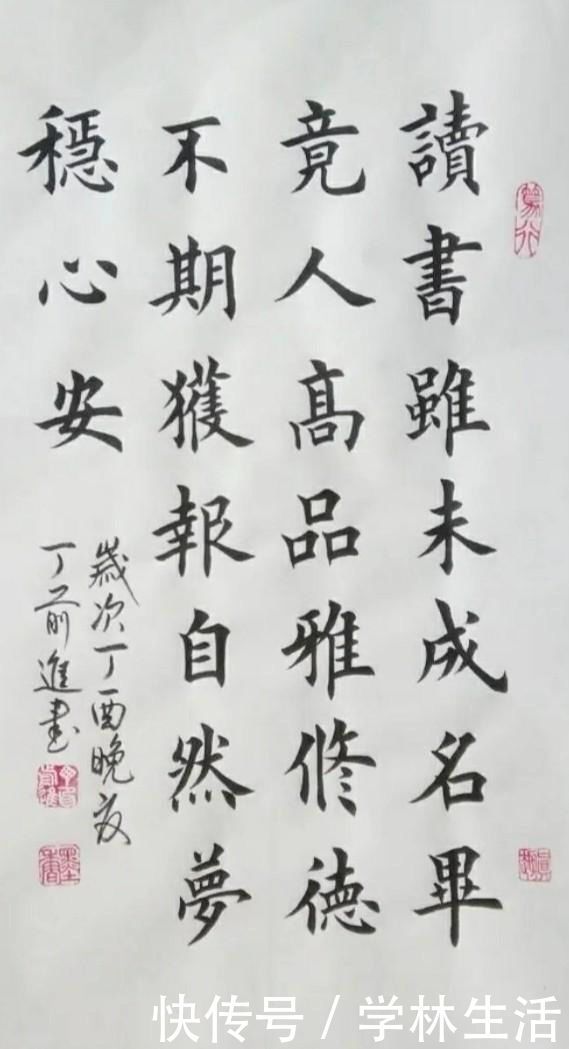 讀書雖未成名畢
竟人高品雅修德
不期獲報自然夢
穩心安
歲次丁酉晚夏
丁前進書
快传号/学林生活